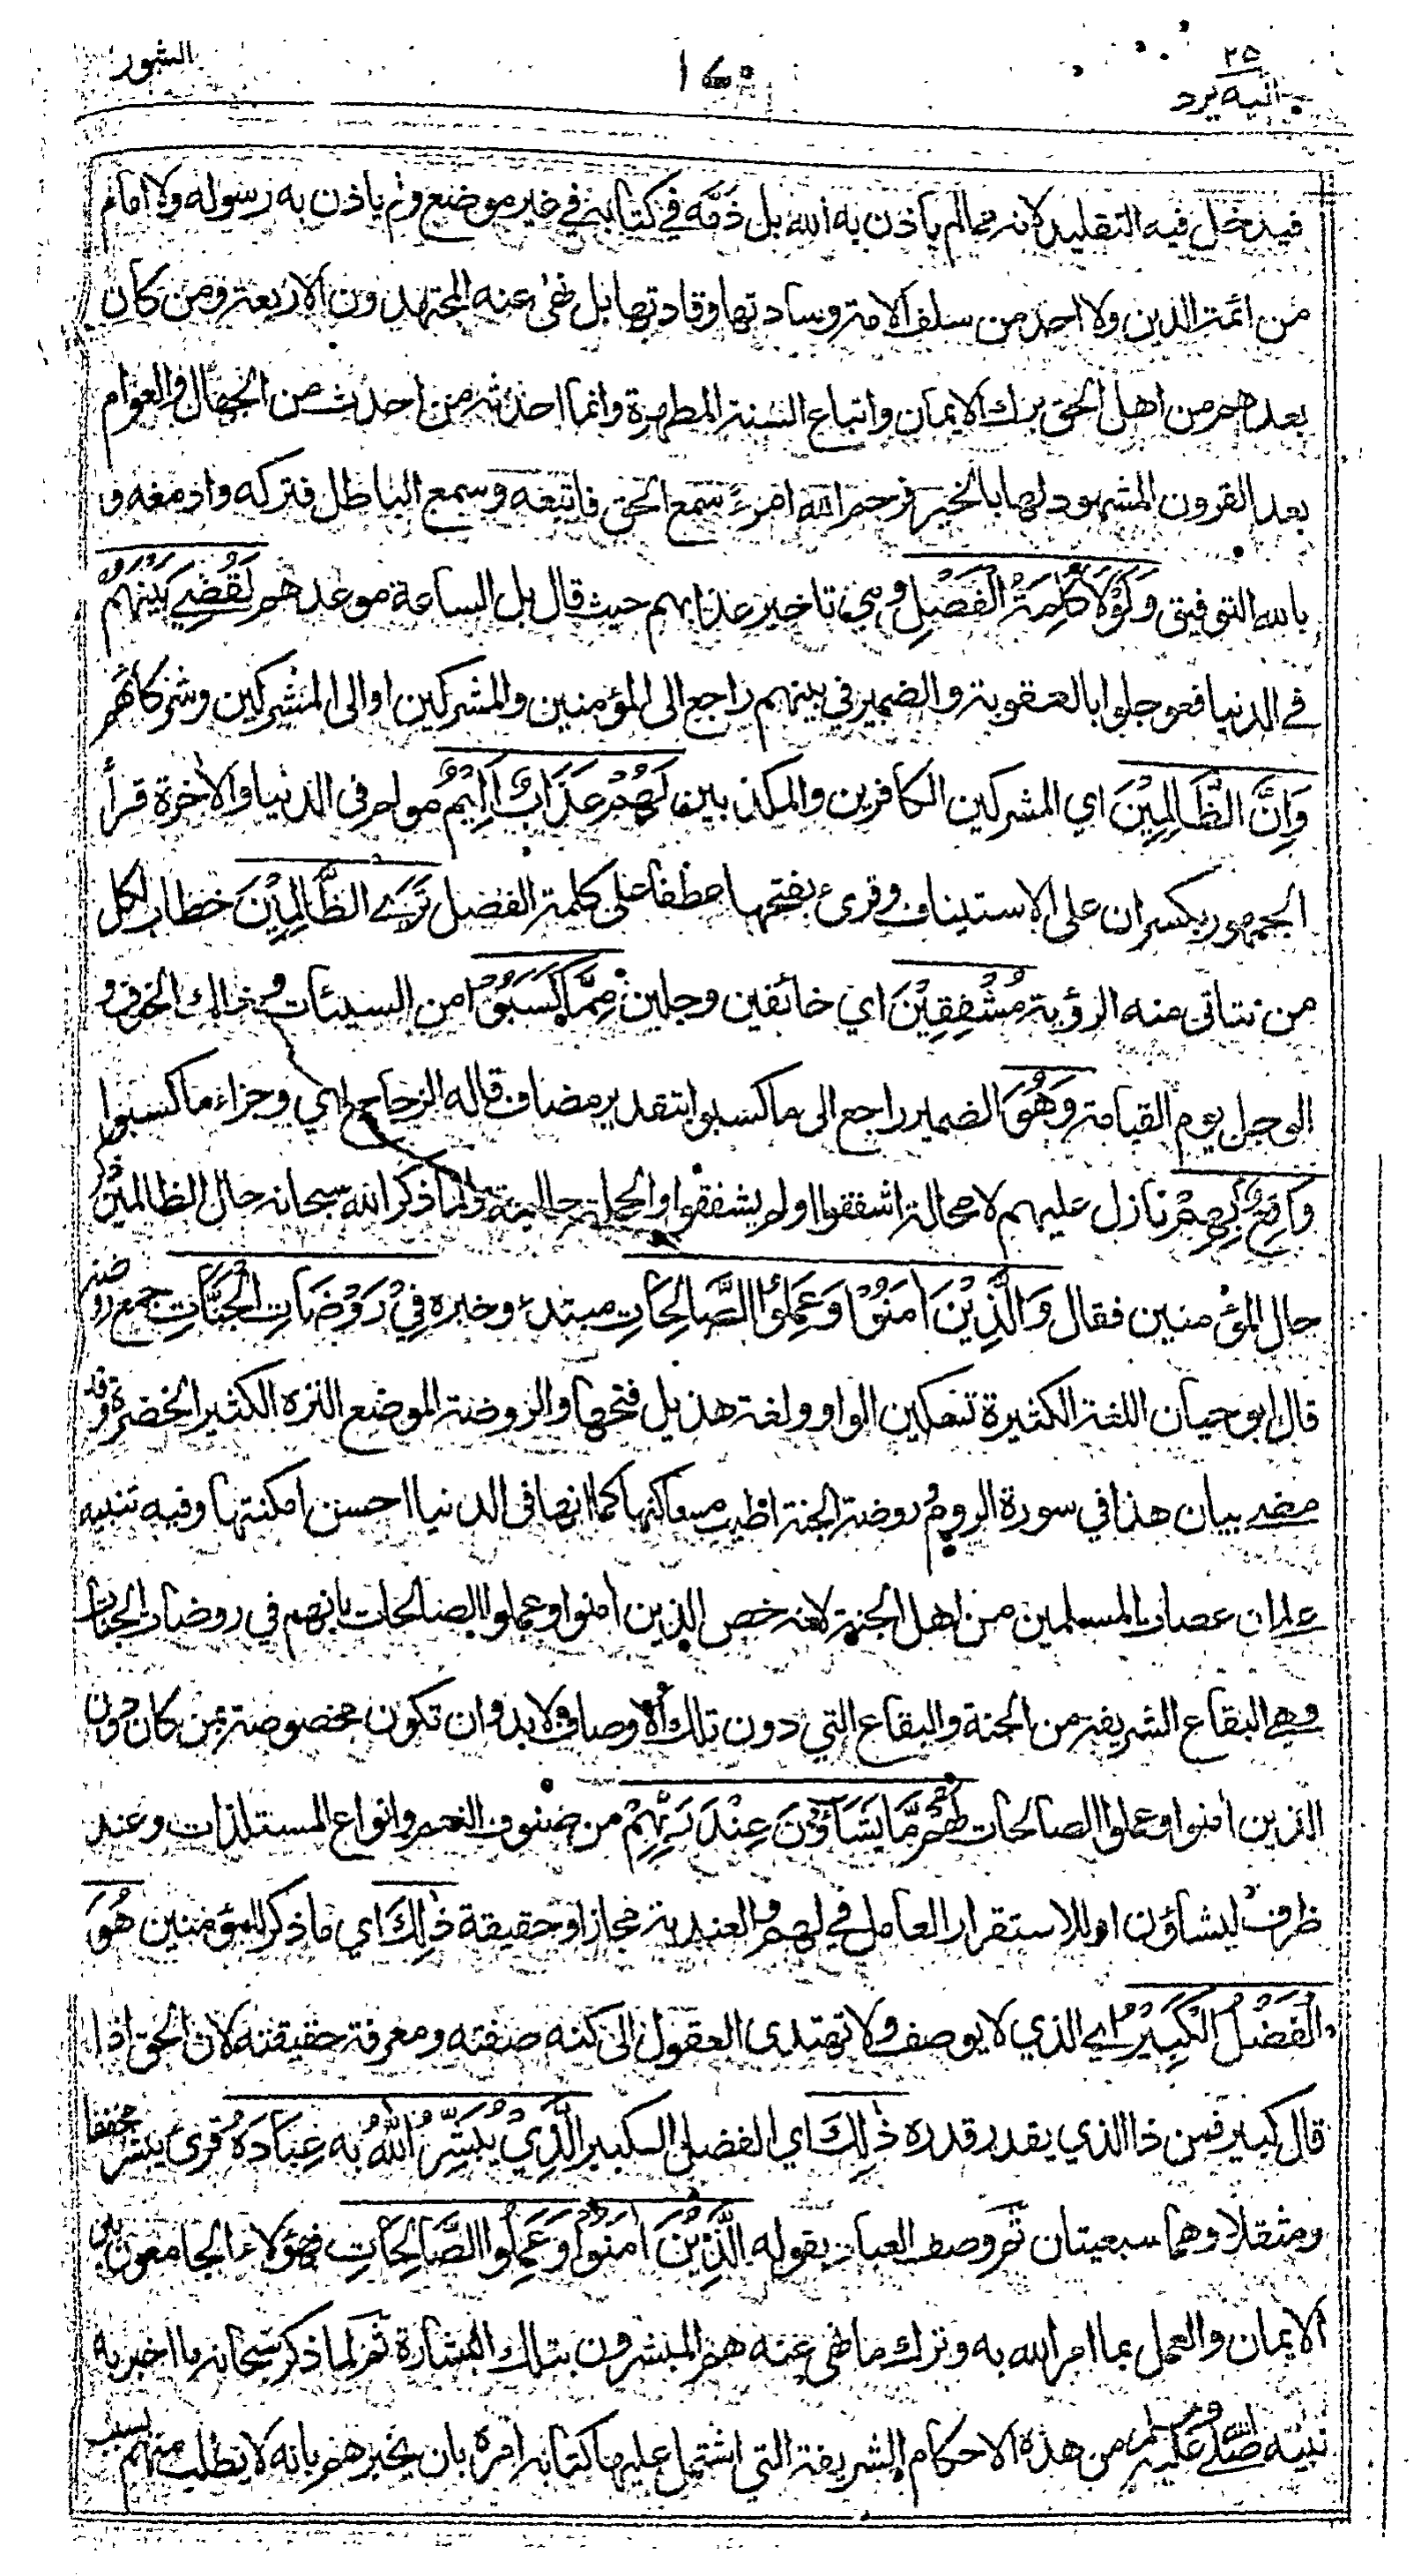 ٢٥
اليه يرد
الشور
فيدخل فيه التقليد لانه مما لم ياذن به الله بل ذمه في كتابه في غير موضع ولم ياذن به رسوله ولا امام
من ائمة الدين ولا احد من سلف الامة وسادتها وقادتها بل نهى عنه المجتهدون الاربعة ومن كان
بعدهم من اهل الحق ترك الايمان واتباع السنة المطهرة وانما احدثه من احدث من الجهال والعوام
بعد القرون المشهود لها بالخير فرحم الله امرءً سمع الحق فاتبعه وسمع الباطل فتركه وادمغه و
بالله التوفيق وَلَوْلَا كَلِمَةُ الْفَصْلِ وهي تاخير عذابهم حيث قال بل الساعة موعدهم لَقُضِيَ بَيْنَهُمْ
في الدنيا فعوجلوا بالعقوبة والضمير في بينهم راجع الى المؤمنين والمشركين او الى المشركين وشركائهم
وَإِنَّ الظَّالِمِيْنَ اي المشركين الكافرين والمكذبين لَهُمْ عَذَابٌ اَلِيْمٌ مولم في الدنيا والاخرة قرأ
الجمهور بكسر ان على الاستيناف وقرئ بفتحها عطفا على كلمة الفصل تَرَى الظَّالِمِيْنَ خطاب لكل
من تتاتى منه الرؤية مُشْفِقِيْنَ اي خائفين وجلين مِمَّا كَسَبُوْا من السيئات وذلك الخوف و
الوجل يوم القيامة وَهُوَ الضمير راجع الى ما كسبوا بتقدير مضاف قاله الزجاج اي وجزاء ما كسبوا
وَاقِعٌ بِهِمْ نازل عليهم لا محالة اشفقوا اولم يشفقوا والجملة حالية ولما ذكر الله سبحانه حال الظالمين ذكر
حال المؤمنين فقال وَالَّذِيْنَ اٰمَنُوْا وَعَمِلُوا الصَّالِحَاتِ مبتدء وخبره فِيْ رَوْضَاتِ الْجَنَّاتِ جمع روضة
قال ابو حيان اللغة الكثيرة تسكين الواو ولغة هذيل فتحها والروضة الموضع النزه الكثير الخضرة وقد
مضى بيان هذا في سورة الروم روضة الجنة اطيب مساكنها كما انها في الدنيا احسن امكنتها وفيه تنبيه
على ان عصاة المسلمين من اهل الجنة لانه خص الذين امنوا وعملوا الصالحات بانهم في روضات الجنات
وهي البقاع الشريفة من الجنة والبقاع التي دون تلك الاوصاف لا بد وان تكون مخصوصة بمن كان دون
الذين امنوا وعملوا الصالحات لَهُمْ مَّا يَشَآؤُنَ عِنْدَ رَبِّهِمْ من صنوف النعم وانواع المستلذات وعند
ظرف ليشاؤن او للاستقرار العامل في لهم والعندية مجاز او حقيقة ذٰلِكَ اي ما ذكر للمؤمنين هُوَ
الْفَضْلُ الْكَبِيْرُ اي الذي لا يوصف ولا تهتدى العقول الى كنه صفته ومعرفة حقيقته لان الحق اذا
قال كبير فمن ذا الذي يقدر قدره ذٰلِكَ اي الفضل الكبير الَّذِيْ يُبَشِّرُ اللّٰهُ بِهِ عِبَادَهُ قرئ يبشر مخففا
ومثقلا وهما سبعيتان ثم وصف العباد بقوله الَّذِيْنَ اٰمَنُوْا وَعَمِلُوا الصَّالِحَاتِ فهؤلاء الجامعون بين
الايمان والعمل بما امر الله به وترك ما نهى عنه هم المبشرون بتلك البشارة ثم لما ذكر سبحانه ما اخبر به
نبيه صلى الله عليه وسلم من هذه الاحكام الشريفة التي اشتمل عليها كتابه امره بان يخبرهم بانه لا يطلب منهم بسبب